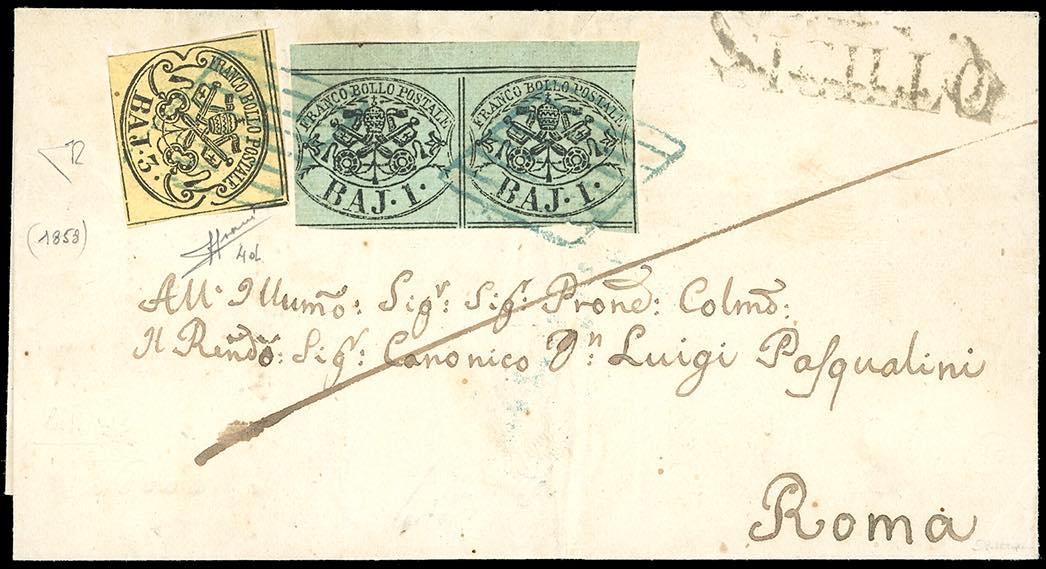 FRANCO BOLLO POSTALE
BAJ·3·
FRANCO BOLLO POSTALE
BAJ·1·
FRANCO BOLLO POSTALE
BAJ·1·
(1858)
4d.
All' Illumo: Sigr: Sigr: Prone: Colmo:
Il Rendo: Sigr: Canonico Dn: Luigi Pasqualini
Roma